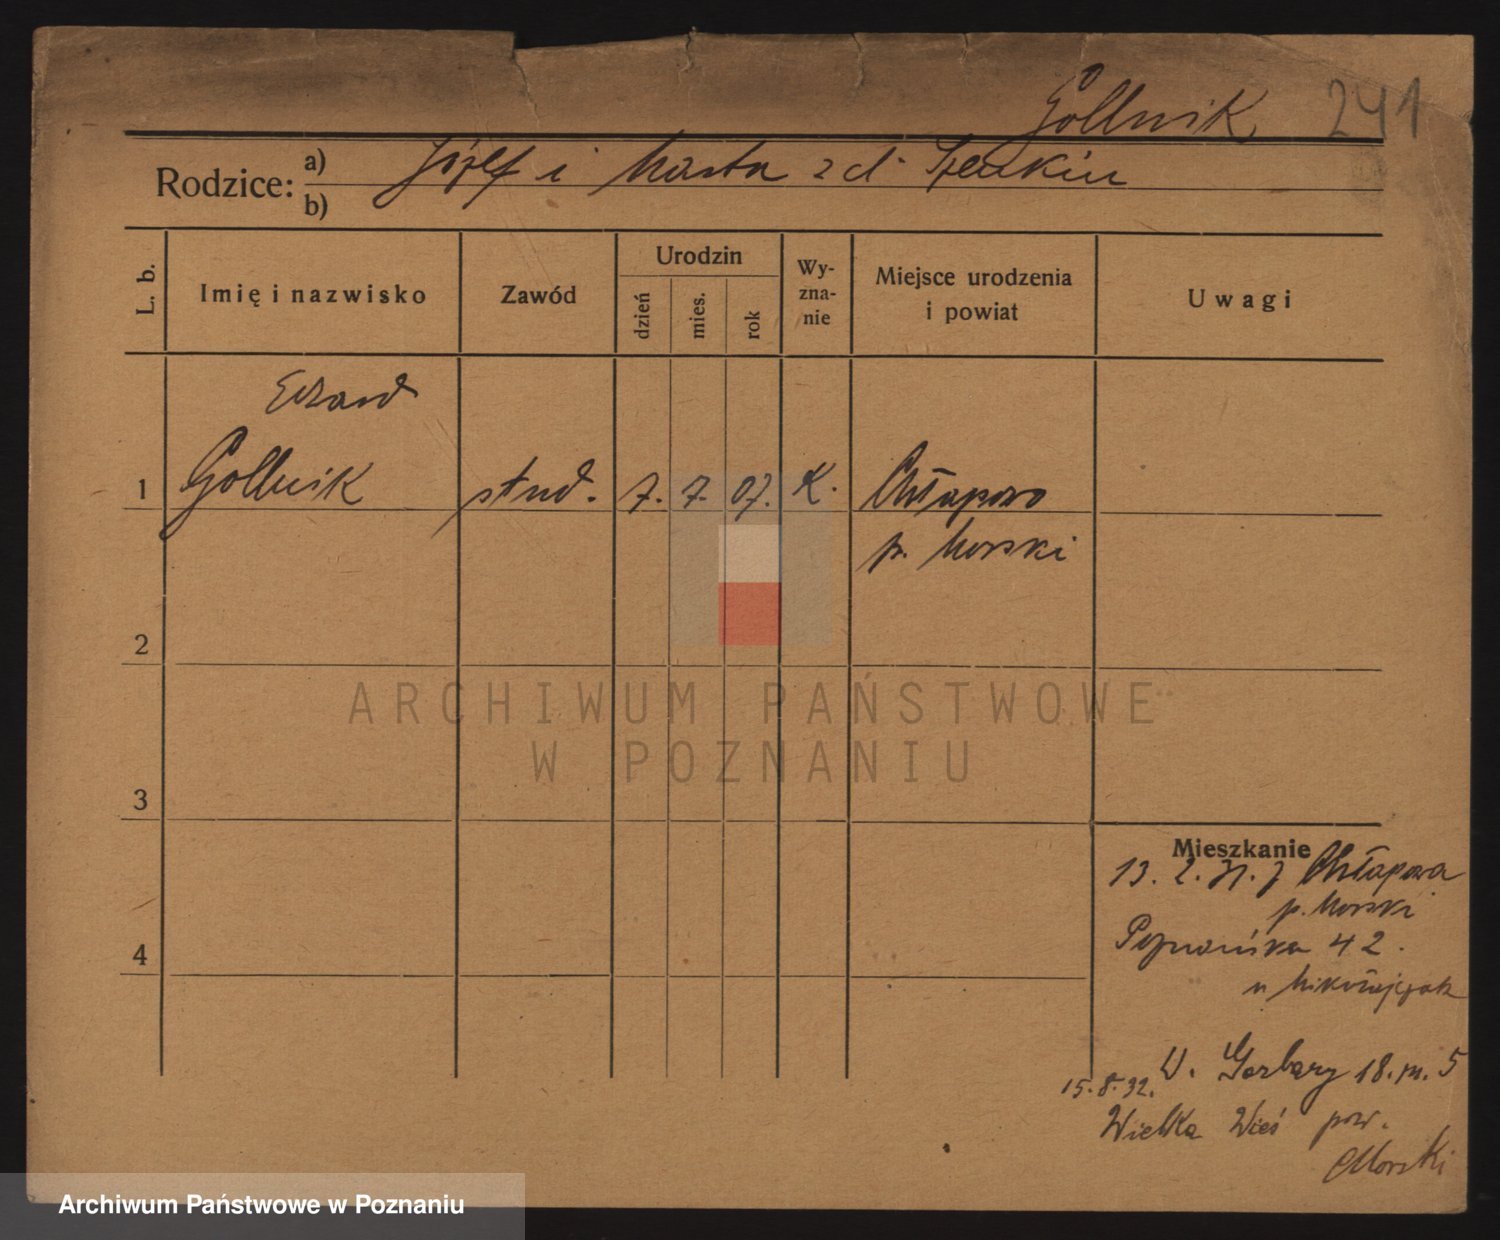 Gollnik 241
Rodzice: a) Józef i Marta z d.
b)
L. b.
Imię i nazwisko
Zawód
Urodzin
dzień
mies.
rok
Wy-
zna-
nie
Miejsce urodzenia
i powiat
Uwagi
Gollnik stud. 7. 7. 07. K. Chłapowo
1
p. Morski
2
ARCHIWUM PAŃSTWOWE
W POZNANIU
3
Mieszkanie
13. 2. 31. z Chłapowa
p. Morski
4
Poznańska 42.
u Mikołajczak
W. Garbary 18. m. 5
15. 8. 32.
Wielka Wieś pow.
Morski
Archiwum Państwowe w Poznaniu